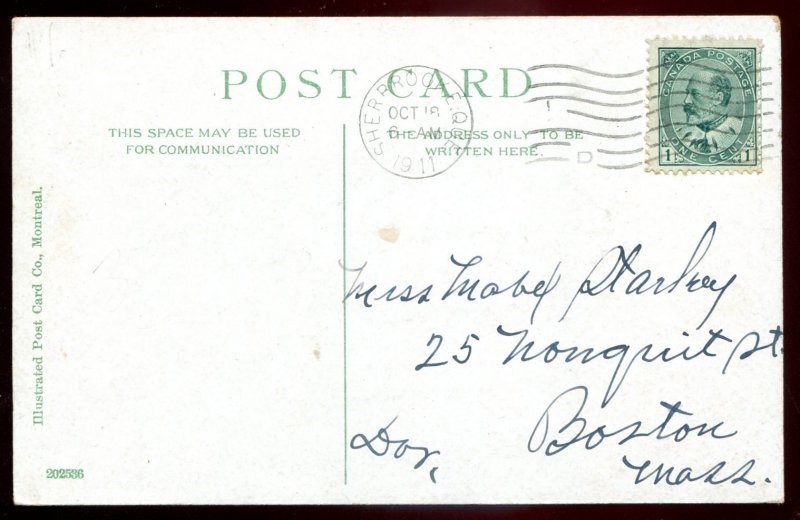 POST CARD
THIS SPACE MAY BE USED
FOR COMMUNICATION
THE ADDRESS ONLY TO BE
WRITTEN HERE.
SHERBROOKE QUE
OCT 18
6- AM
1911
D
CANADA POSTAGE
1 ONE CENT 1
Miss Mabel Starkey
25 Nonquit St.
Boston
Dor,
Mass.
Illustrated Post Card Co., Montreal.
202536